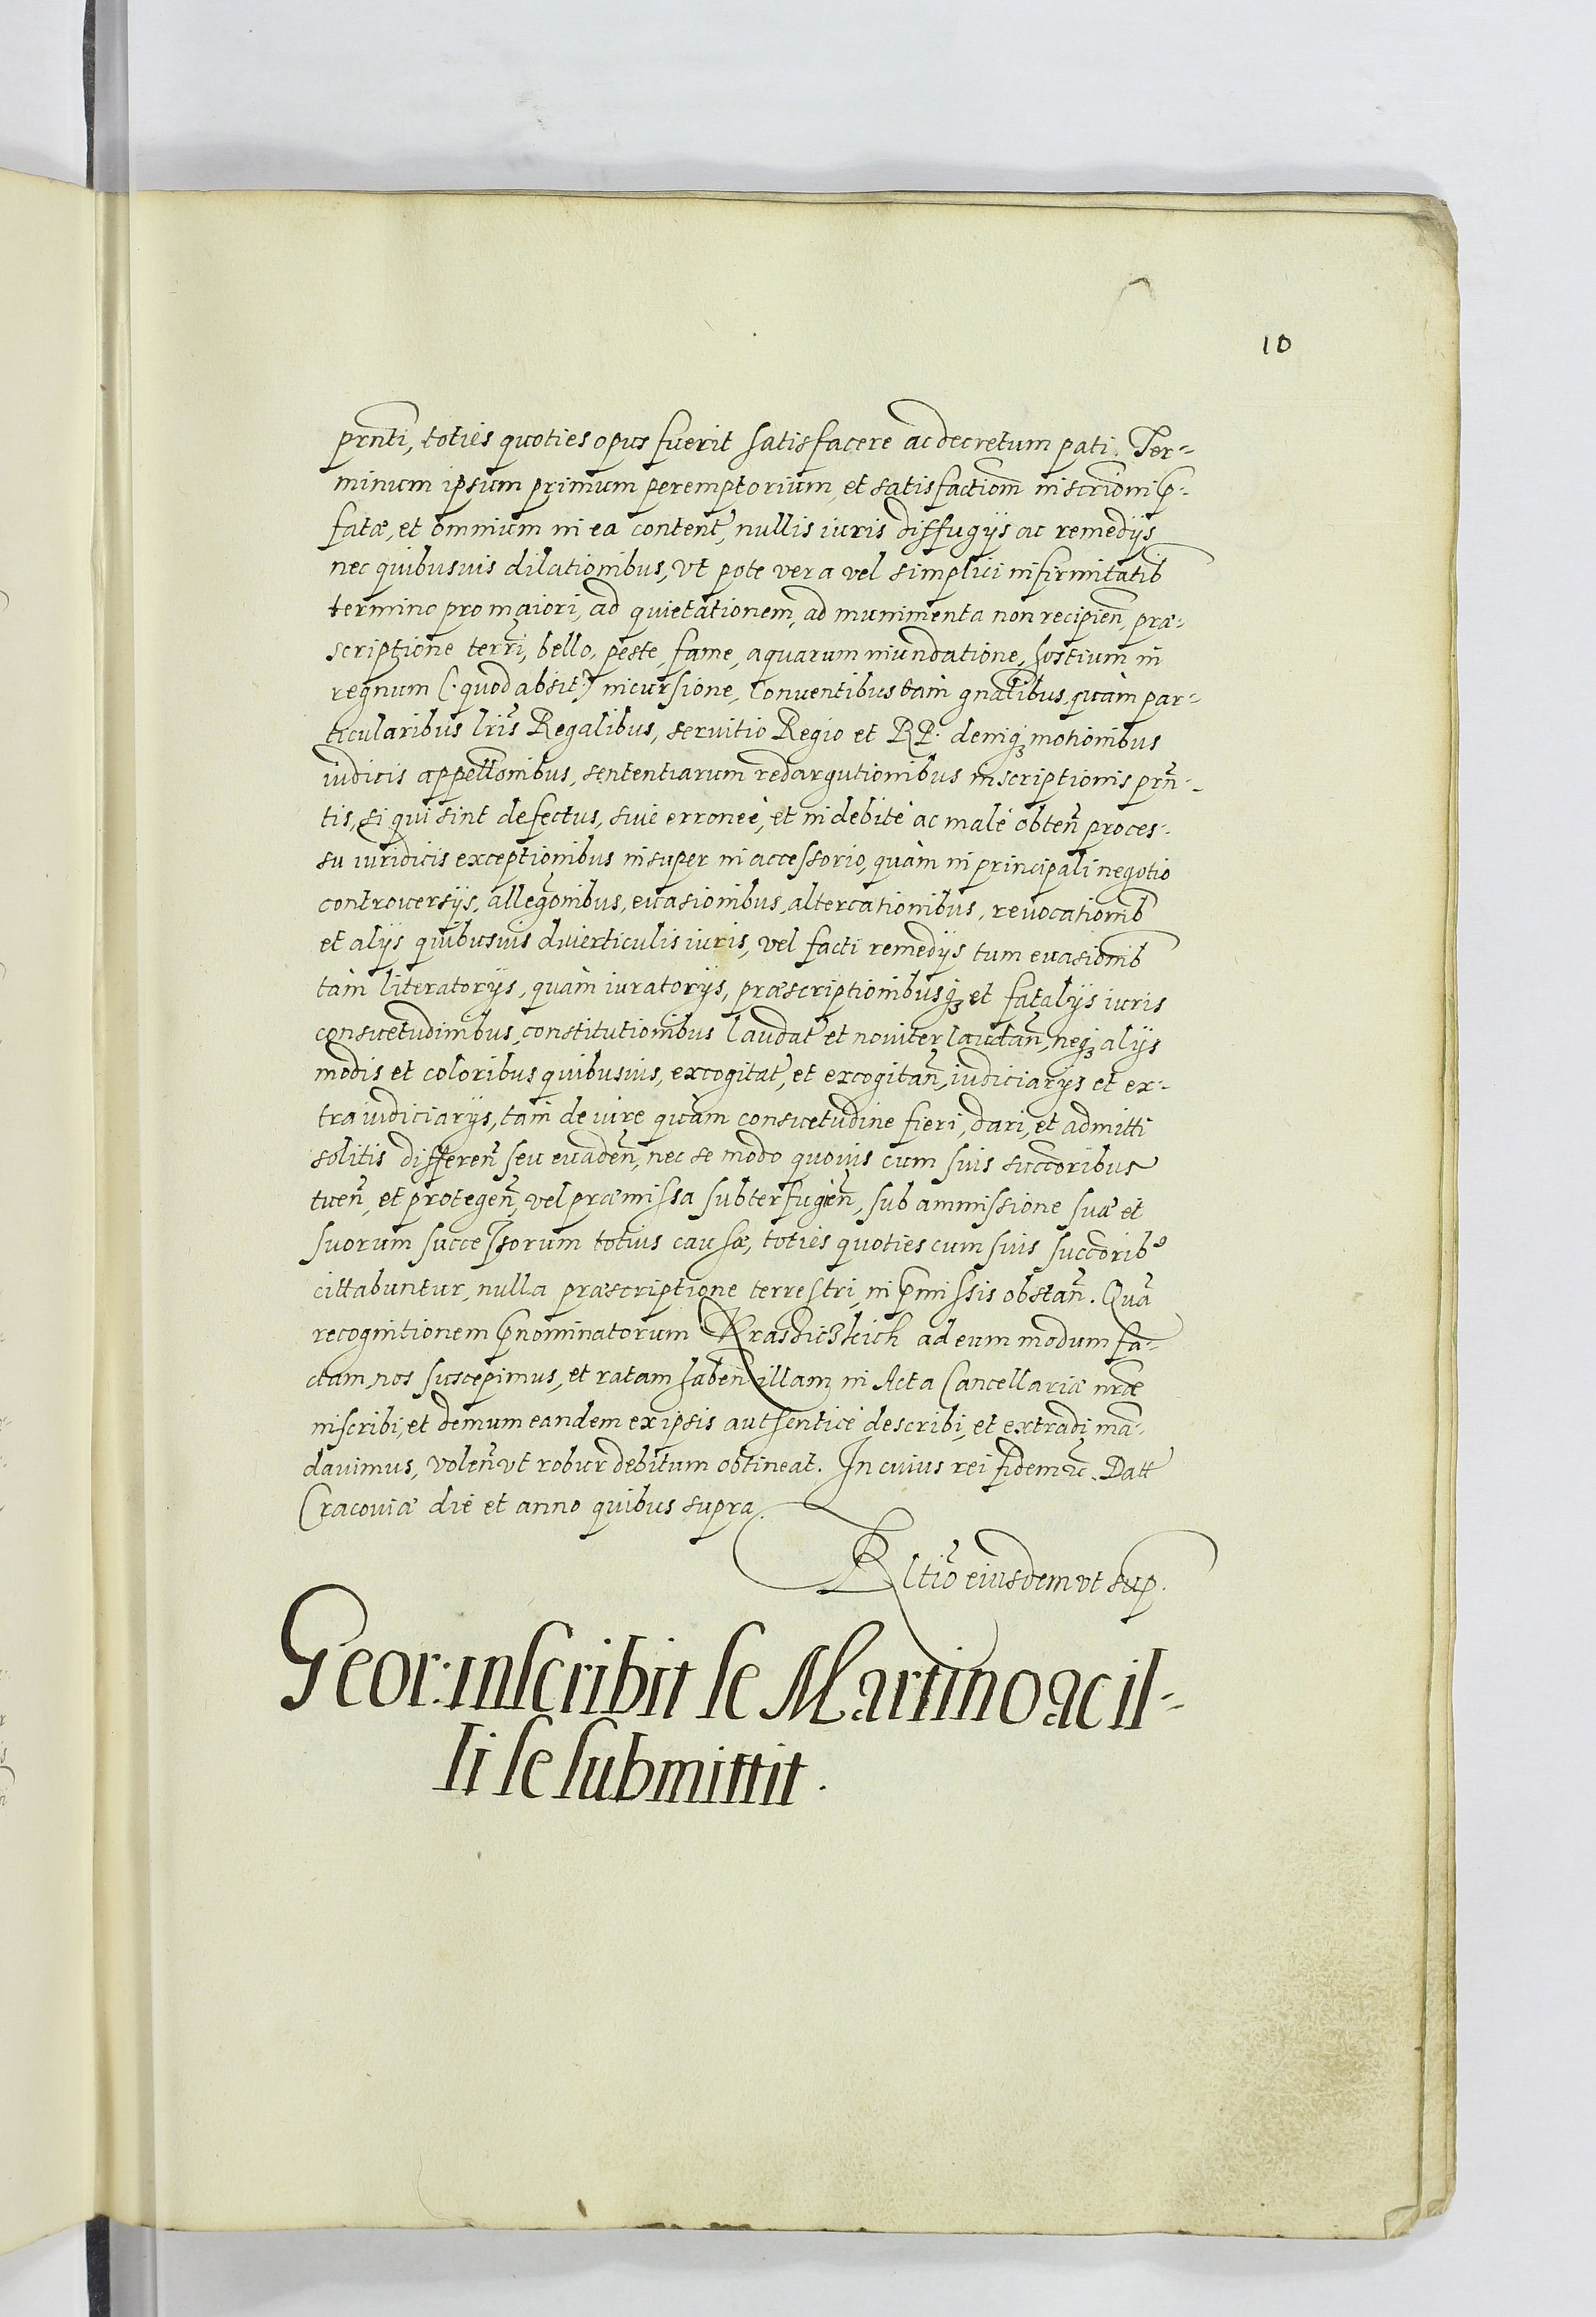 10
prnti, toties quoties opus fuerit satisfacere ac decretum pati. Ter-
minum ipsum primum peremptorium, et satisfactiom inscriõni p̃-
fatæ, et omnium in ea content, nullis iuris diffugÿs ac remedÿs
nec quibusuis dilationibus, vt pote vera vel simplici infirmitatib
termino pro maiori, ad quietationem, ad munimenta non recipieñ, præ-
scriptione terri, bello, peste, fame, aquarum inundatione, hostium in
regnum (: quod absit :) incursione, Conuentibus tam gnalibus, quàm par-
ticularibus lris Regalibus, seruitio Regio et RP. deniq̃ motionibus
iudicis appellonibus, sententiarum redargutionibus inscriptionis prñ-
tis, si qui sint defectus, siue erroneè, et indebitè ac malè obteñ proces-
su iuridicis exceptionibus insuper in accessorio, quàm in principali negotio
controuersÿs, allegonibus, euasionibus, altercationibus, reuocationib
et alÿs quibusuis diuerticulis iuris, vel facti remedÿs tum euasionib
tàm literatorÿs, quàm iuratorÿs, præscriptionibusq̃ et fatalÿs iuris
consuetudinibus, constitutionibus laudat et nouiter laudañ, neq̃ alÿs
modis et coloribus quibusuis, excogitat, et excogitañ, iudiciarÿs et ex-
traiudiciarÿs, tam de iure quàm consuetudine fieri, dari, et admitti
solitis differeñ seu euadeñ, nec se modo quouis cum suis succoribus
tueñ, et protegeñ, vel præmissa subterfugieñ, sub ammissione suæ et
suorum successorum totius causæ, toties quoties cum suis succorib9
cittabuntur, nulla præscriptione terrestri, in p̃missis obstañ. Quã
recognitionem p̃nominatorum Krasiczkich ad eum modum fa-
ctam, nos suscepimus, et ratam habeñ illam in Acta Cancellariæ nræ
inscribi, et demum eandem ex ipsis authenticè describi, et extradi mã-
dauimus, voleñ vt robur debitum obtineat. In cuius rei fidem &c. Datt
Cracouiæ die et anno quibus supra.
Rltio eiusdem vt sup.
Geor: inscribit se Martino ac il-
li se submittit.